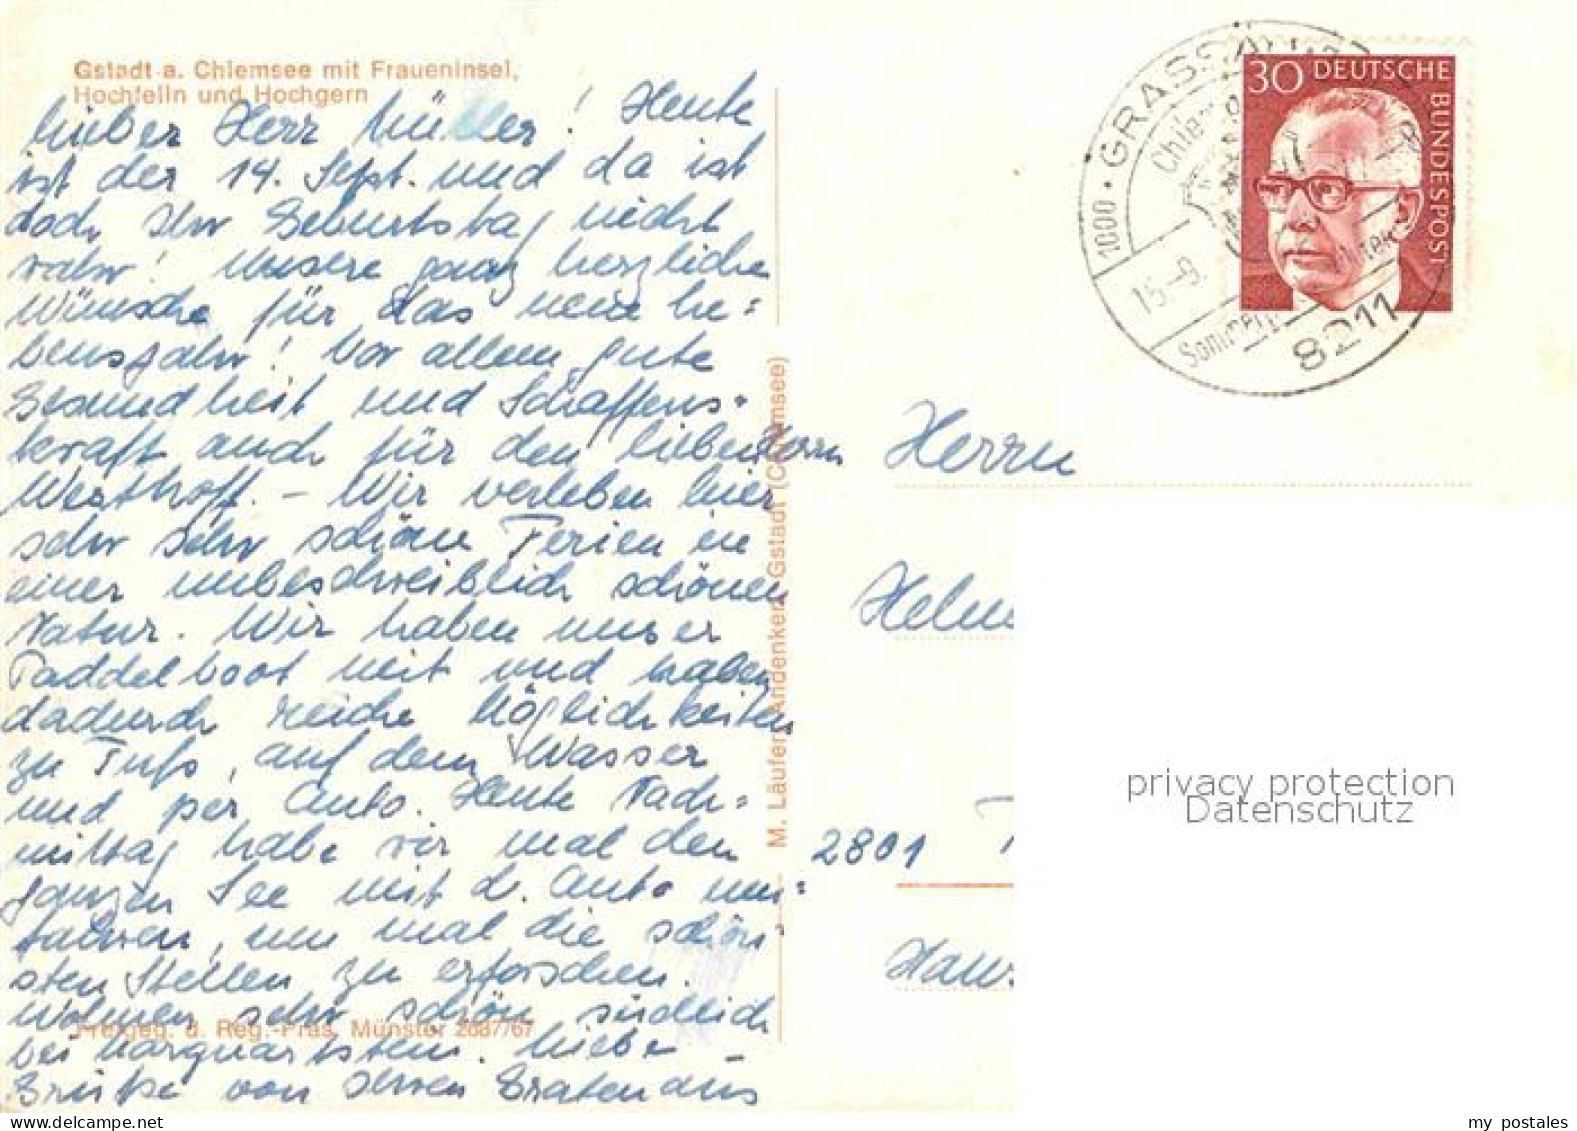 Gstadt a. Chiemsee mit Fraueninsel,
Hochfelln und Hochgern
Lieber Herr Müller! Heute
ist der 14. Sept. und da ist
doch Ihr Geburtstag nicht
wahr! Unsere ganz herzliche
Wünsche für das neue Le=
bensjahr! Vor allem gute
Gesundheit und Schaffens=
kraft auch für den lieben Herrn
Westhoff. – Wir verleben hier
sehr sehr schöne Ferien in
einer unbeschreiblich schönen
Natur. Wir haben unser
Paddelboot mit und haben
dadurch reiche Möglichkeiten
zu Fuß, auf dem Wasser
und per Auto. Heute Nach=
mittag habe wir mal den
ganzen See mit d. Auto um=
fahren, um mal die schön=
sten Stellen zu erforschen.
Wohnen sehr schön südlich
bei Marquartstein. Liebe
Grüße von Ihren
Freigeg. d. Reg.-Präs. Münster 2687/67
M. Läufer, Andenken, Gstadt (Chiemsee)
1000 · GRASSAU
15.-9.
8211
30 DEUTSCHE
BUNDESPOST
Herrn
2801
privacy protection
Datenschutz
my postales